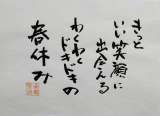 きっと
いい笑顔に
出会える
わくわく
ドキドキの
春休み